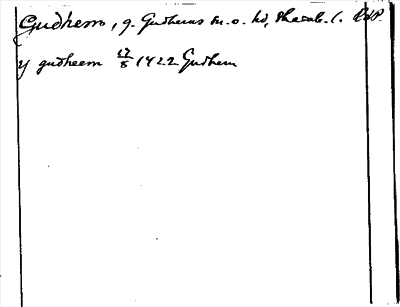 Gudhem, g. Gudhems sn. o. hd, Skarab. l. RAP.
y gudheem 27/8 1422 Gudhem